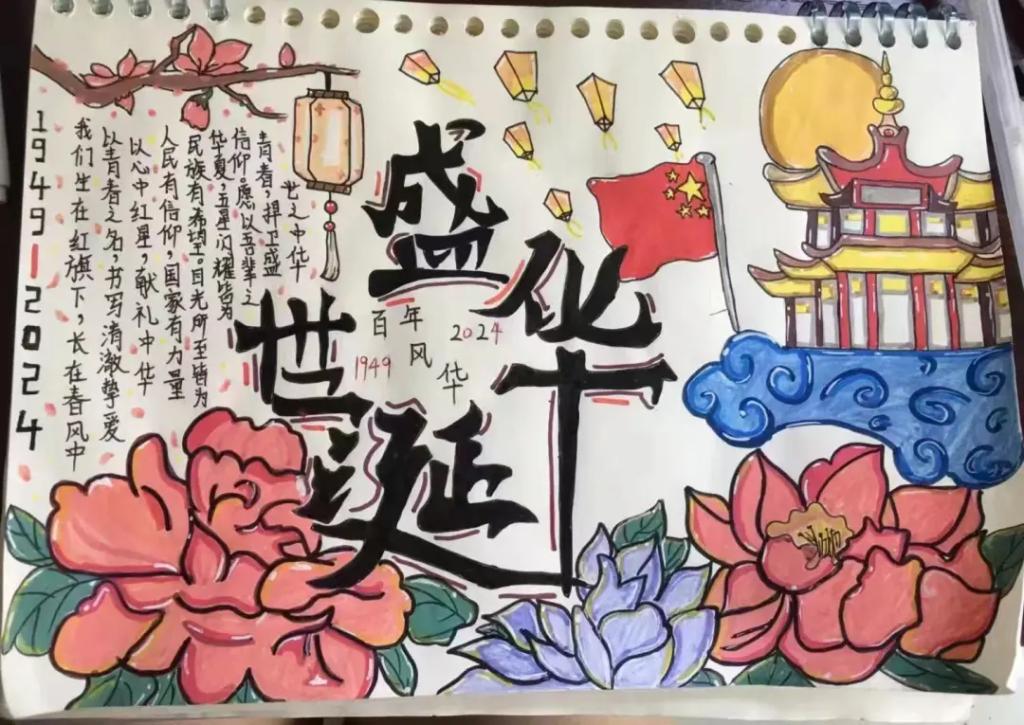 1949-2024
我们生在红旗下，长在春风中
以青春之名，书写清澈挚爱
以心中红星，献礼中华
人民有信仰，国家有力量
民族有希望。目光所至皆为
华夏，五星闪耀皆为
信仰。愿以吾辈之
青春，捍卫盛
世之中华
盛世华诞
百年风华
1949
2024